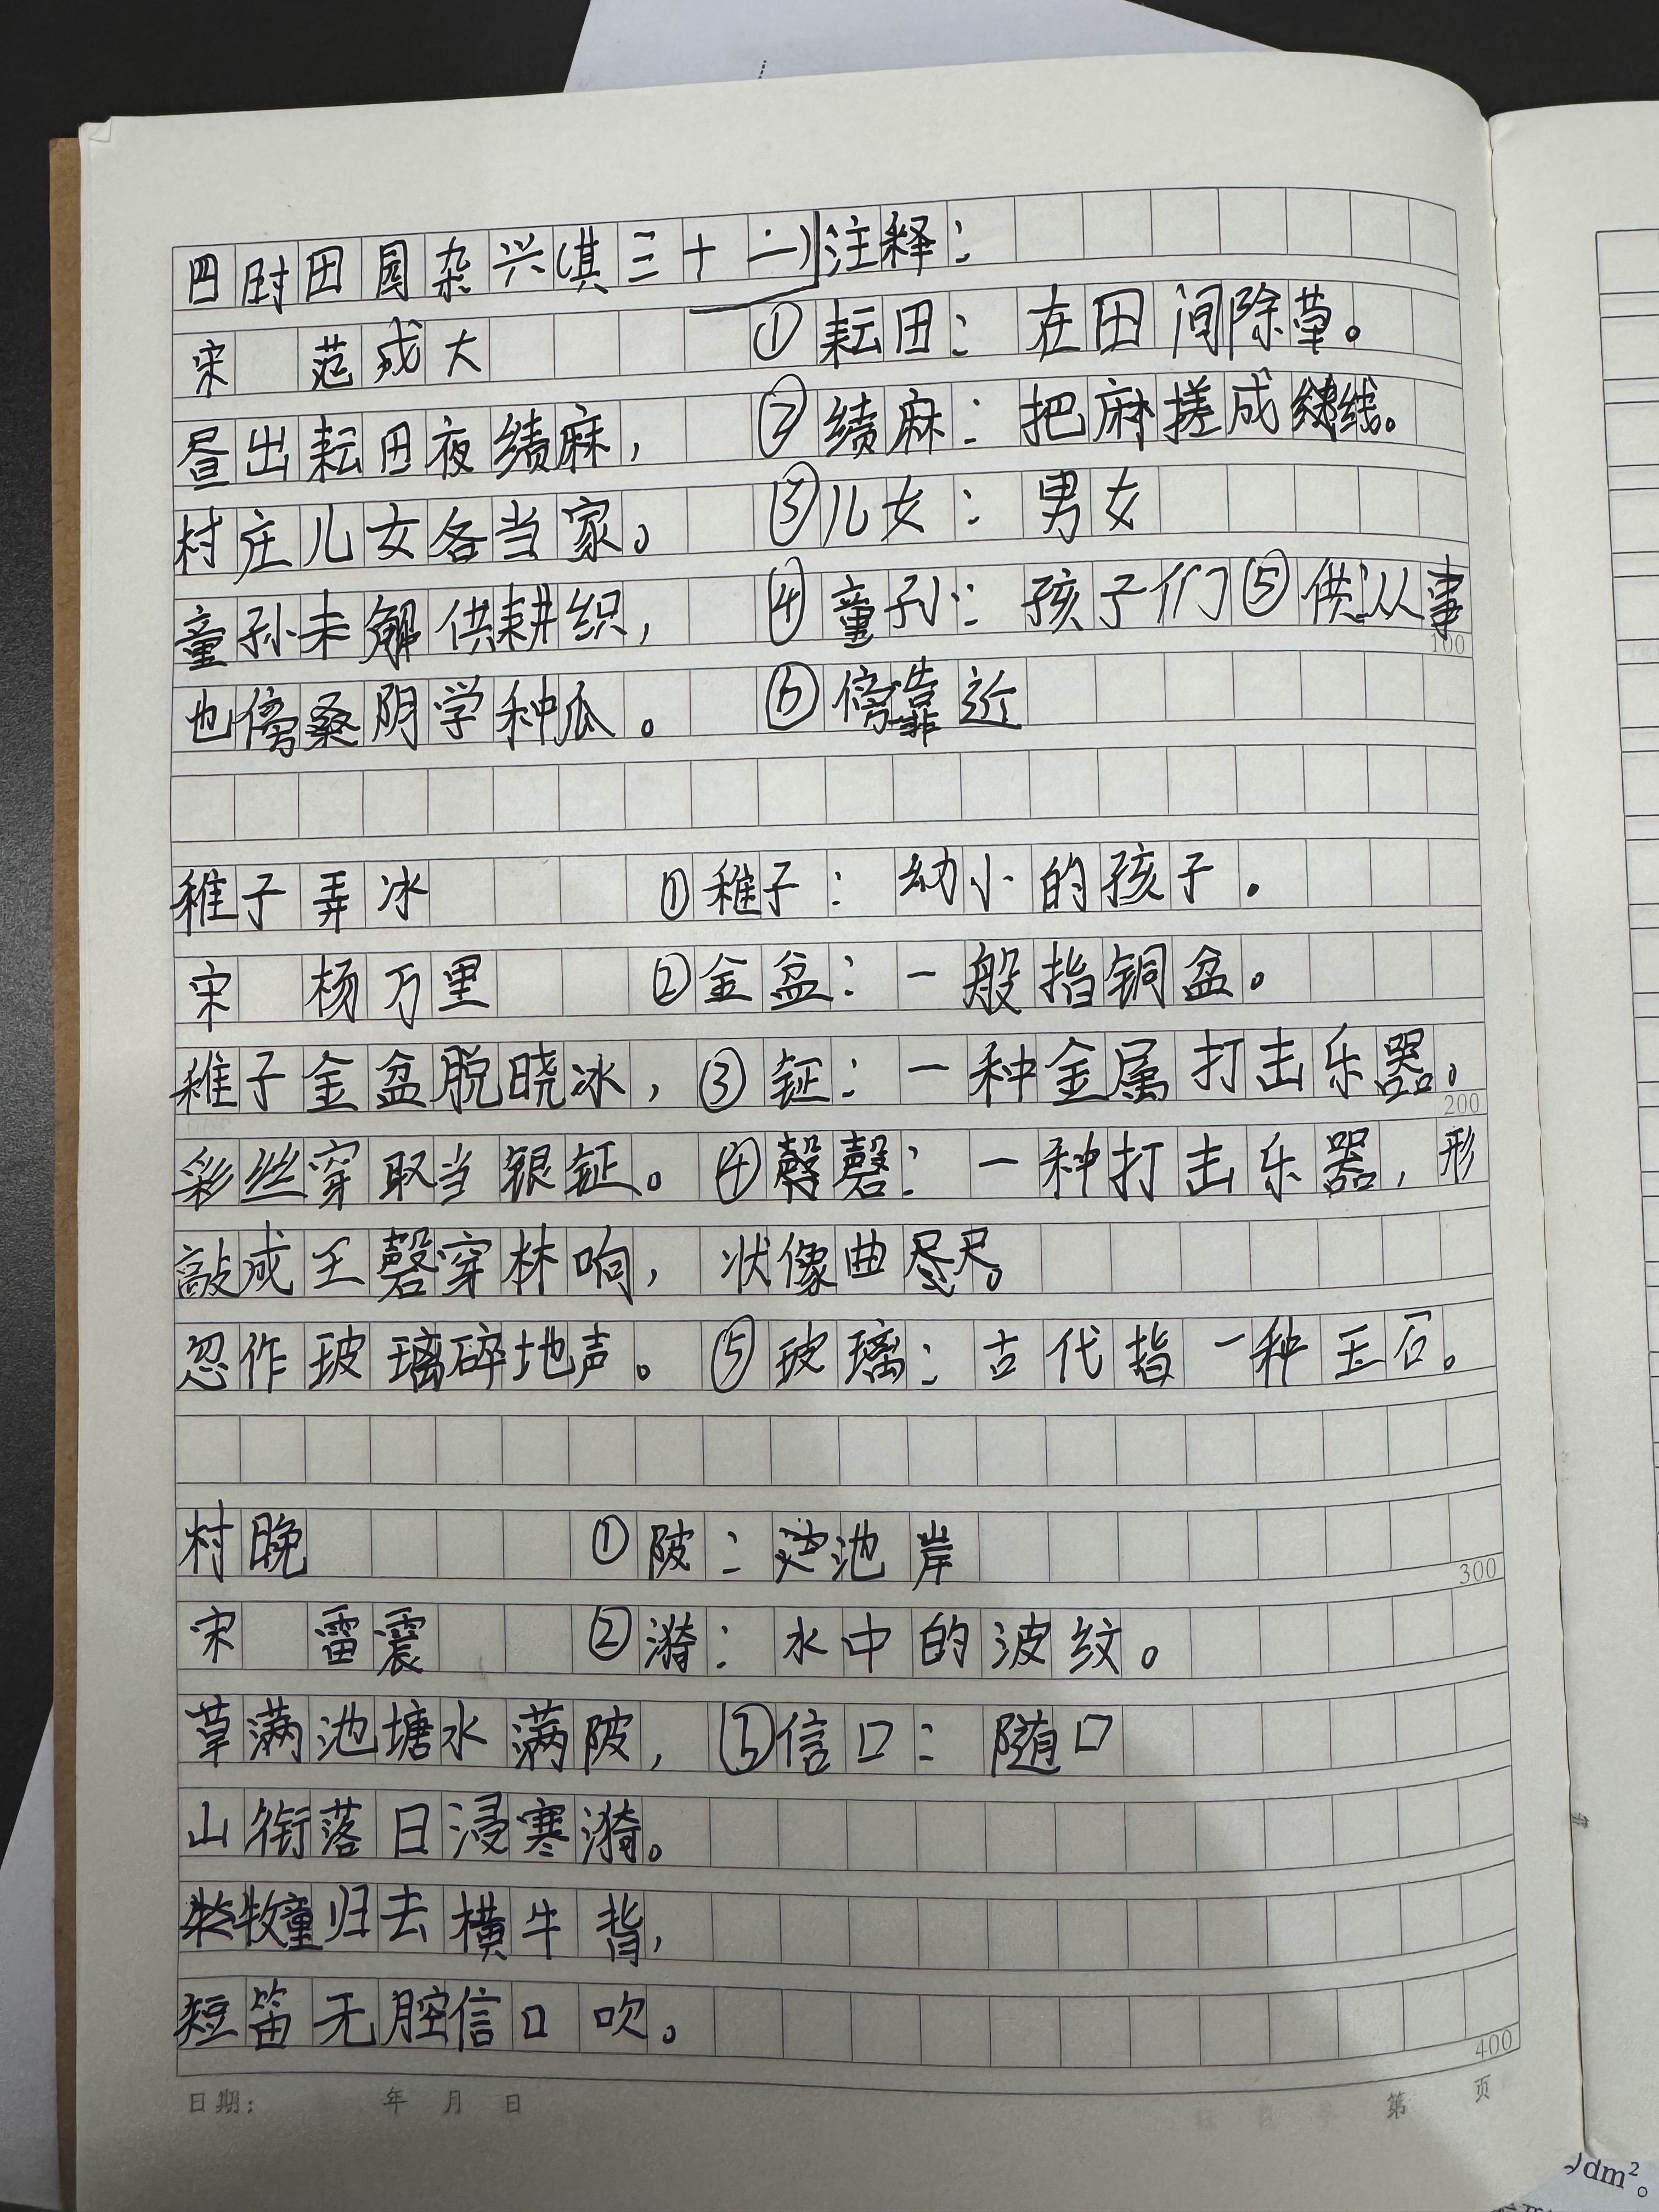 四时田园杂兴(其三十一)注释：
宋 范成大 ①耘田：在田间除草。
昼出耘田夜绩麻， ②绩麻：把麻搓成线。
村庄儿女各当家。 ③儿女：男女
童孙未解供耕织， ④童孙：孩子们⑤供：从事
也傍桑阴学种瓜。 ⑥傍靠近
稚子弄冰 ①稚子：幼小的孩子.
宋 杨万里 ②金盆：一般指铜盆。
稚子金盆脱晓冰，③钲：一种金属打击乐器。
彩丝穿取当银钲。④磬：一种打击乐器，形
敲成玉磬穿林响， 状像曲尺。
忽作玻璃碎地声。⑤玻璃：古代指一种玉石。
村晚 ①陂：池岸
宋 雷震 ②漪：水中的波纹。
草满池塘水满陂，③信口：随口
山衔落日浸寒漪。
牧童归去横牛背，
短笛无腔信口吹。
100
200
300
400
日期： 年 月 日 第 页
dm²。